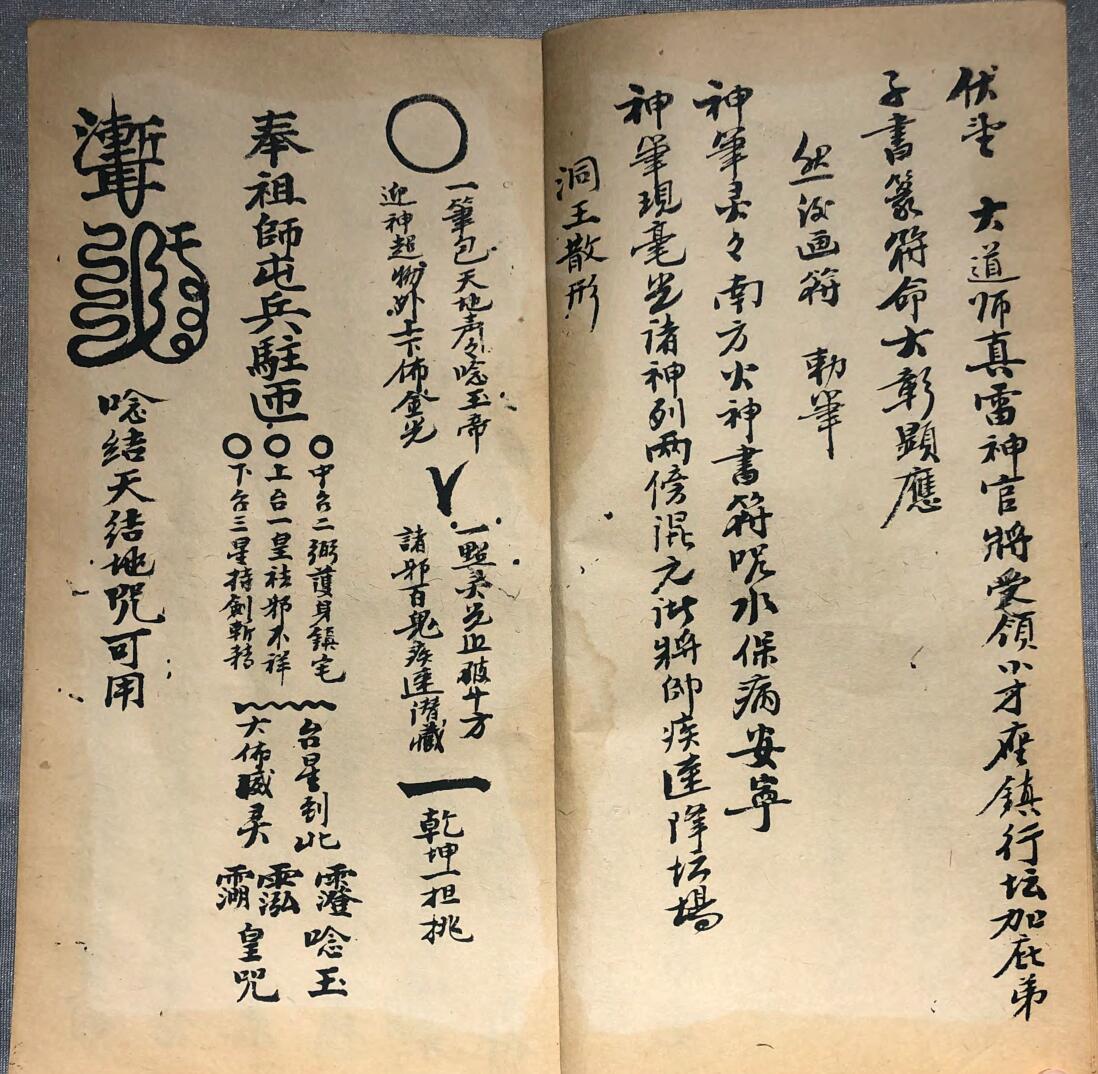 伏望 大道师真雷神官將受領小才座鎮行坛加庇弟
子書篆符命大彰顯應
然后画符 勅筆
神筆灵々南方火神書符咒水保病安寧
神筆現毫光諸神列两傍混元派將帅疾速降坛場
洞王散形
〇
一筆包天地声々唸玉帝
迎神起物外上下佈金光
一點灵光正破十方
諸邪百鬼疾速潛藏
一
乾坤一担挑
奉祖師屯兵駐
中台二弼護身鎮宅
上台一皇祛邪不祥
下台三星持劍斬
台星到此
大佈威灵
唸玉
皇咒
唸結天結地咒可用